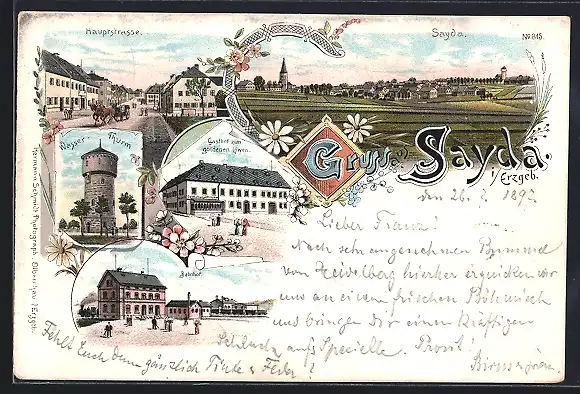 Hauptstrasse.
Sayda.
No 815.
Wasser-Thurm
Gasthof zum
goldenen Löwen.
Gruss aus Sayda.
i/Erzgeb.
Bahnhof.
Hermann Schmidt, Photograph, Olbernhau i/Erzgeb.
den 26. 7. 189
Lieber Franz!
Nach sehr angenehmen Bummel
von Heidelberg hierher erquicken wir
uns an einem frischen Böhmisch
und bringen dir einen kräftigen
Schluck aufs Specielle. Prosit!
Fehlt Euch denn gänzlich Tinte u Feder?